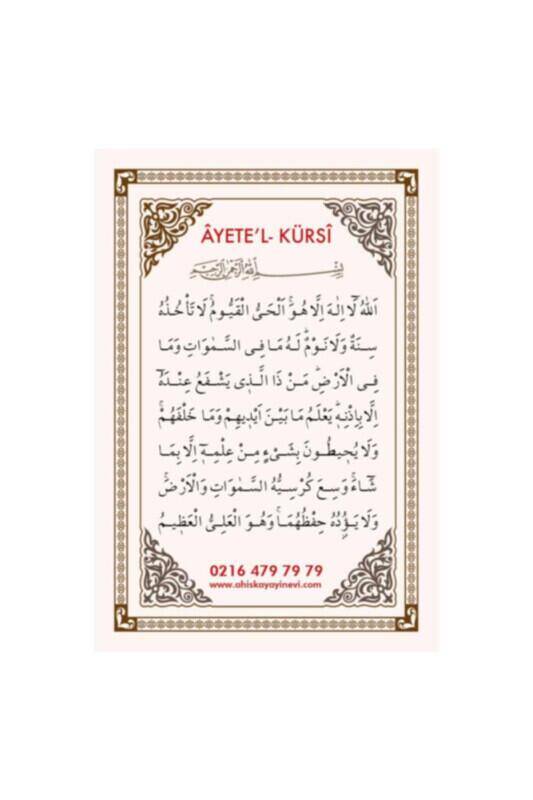 ÂYETE'L- KÜRSÎ
بِسْمِ اللّٰهِ الرَّحْمٰنِ الرَّحِيمِ
اَللّٰهُ لَٓا اِلٰهَ اِلَّا هُوَۚ اَلْحَىُّ الْقَيُّومُۚ لَا تَأْخُذُهُ
سِنَةٌ وَلَا نَوْمٌۜ لَهُ مَا فِى السَّمٰوَاتِ وَمَا
فِى الْاَرْضِۜ مَنْ ذَا الَّذٖى يَشْفَعُ عِنْدَهُٓ
اِلَّا بِاِذْنِهٖۜ يَعْلَمُ مَا بَيْنَ اَيْدٖيهِمْ وَمَا خَلْفَهُمْۚ
وَلَا يُحٖيطُونَ بِشَىْءٍ مِنْ عِلْمِهٖٓ اِلَّا بِمَا
شَٓاءَۚ وَسِعَ كُرْسِيُّهُ السَّمٰوَاتِ وَالْاَرْضَۚ
وَلَا يَؤُ۫دُهُ حِفْظُهُمَاۚ وَهُوَ الْعَلِىُّ الْعَظٖيمُ
0216 479 79 79
www.ahiskayayinevi.com